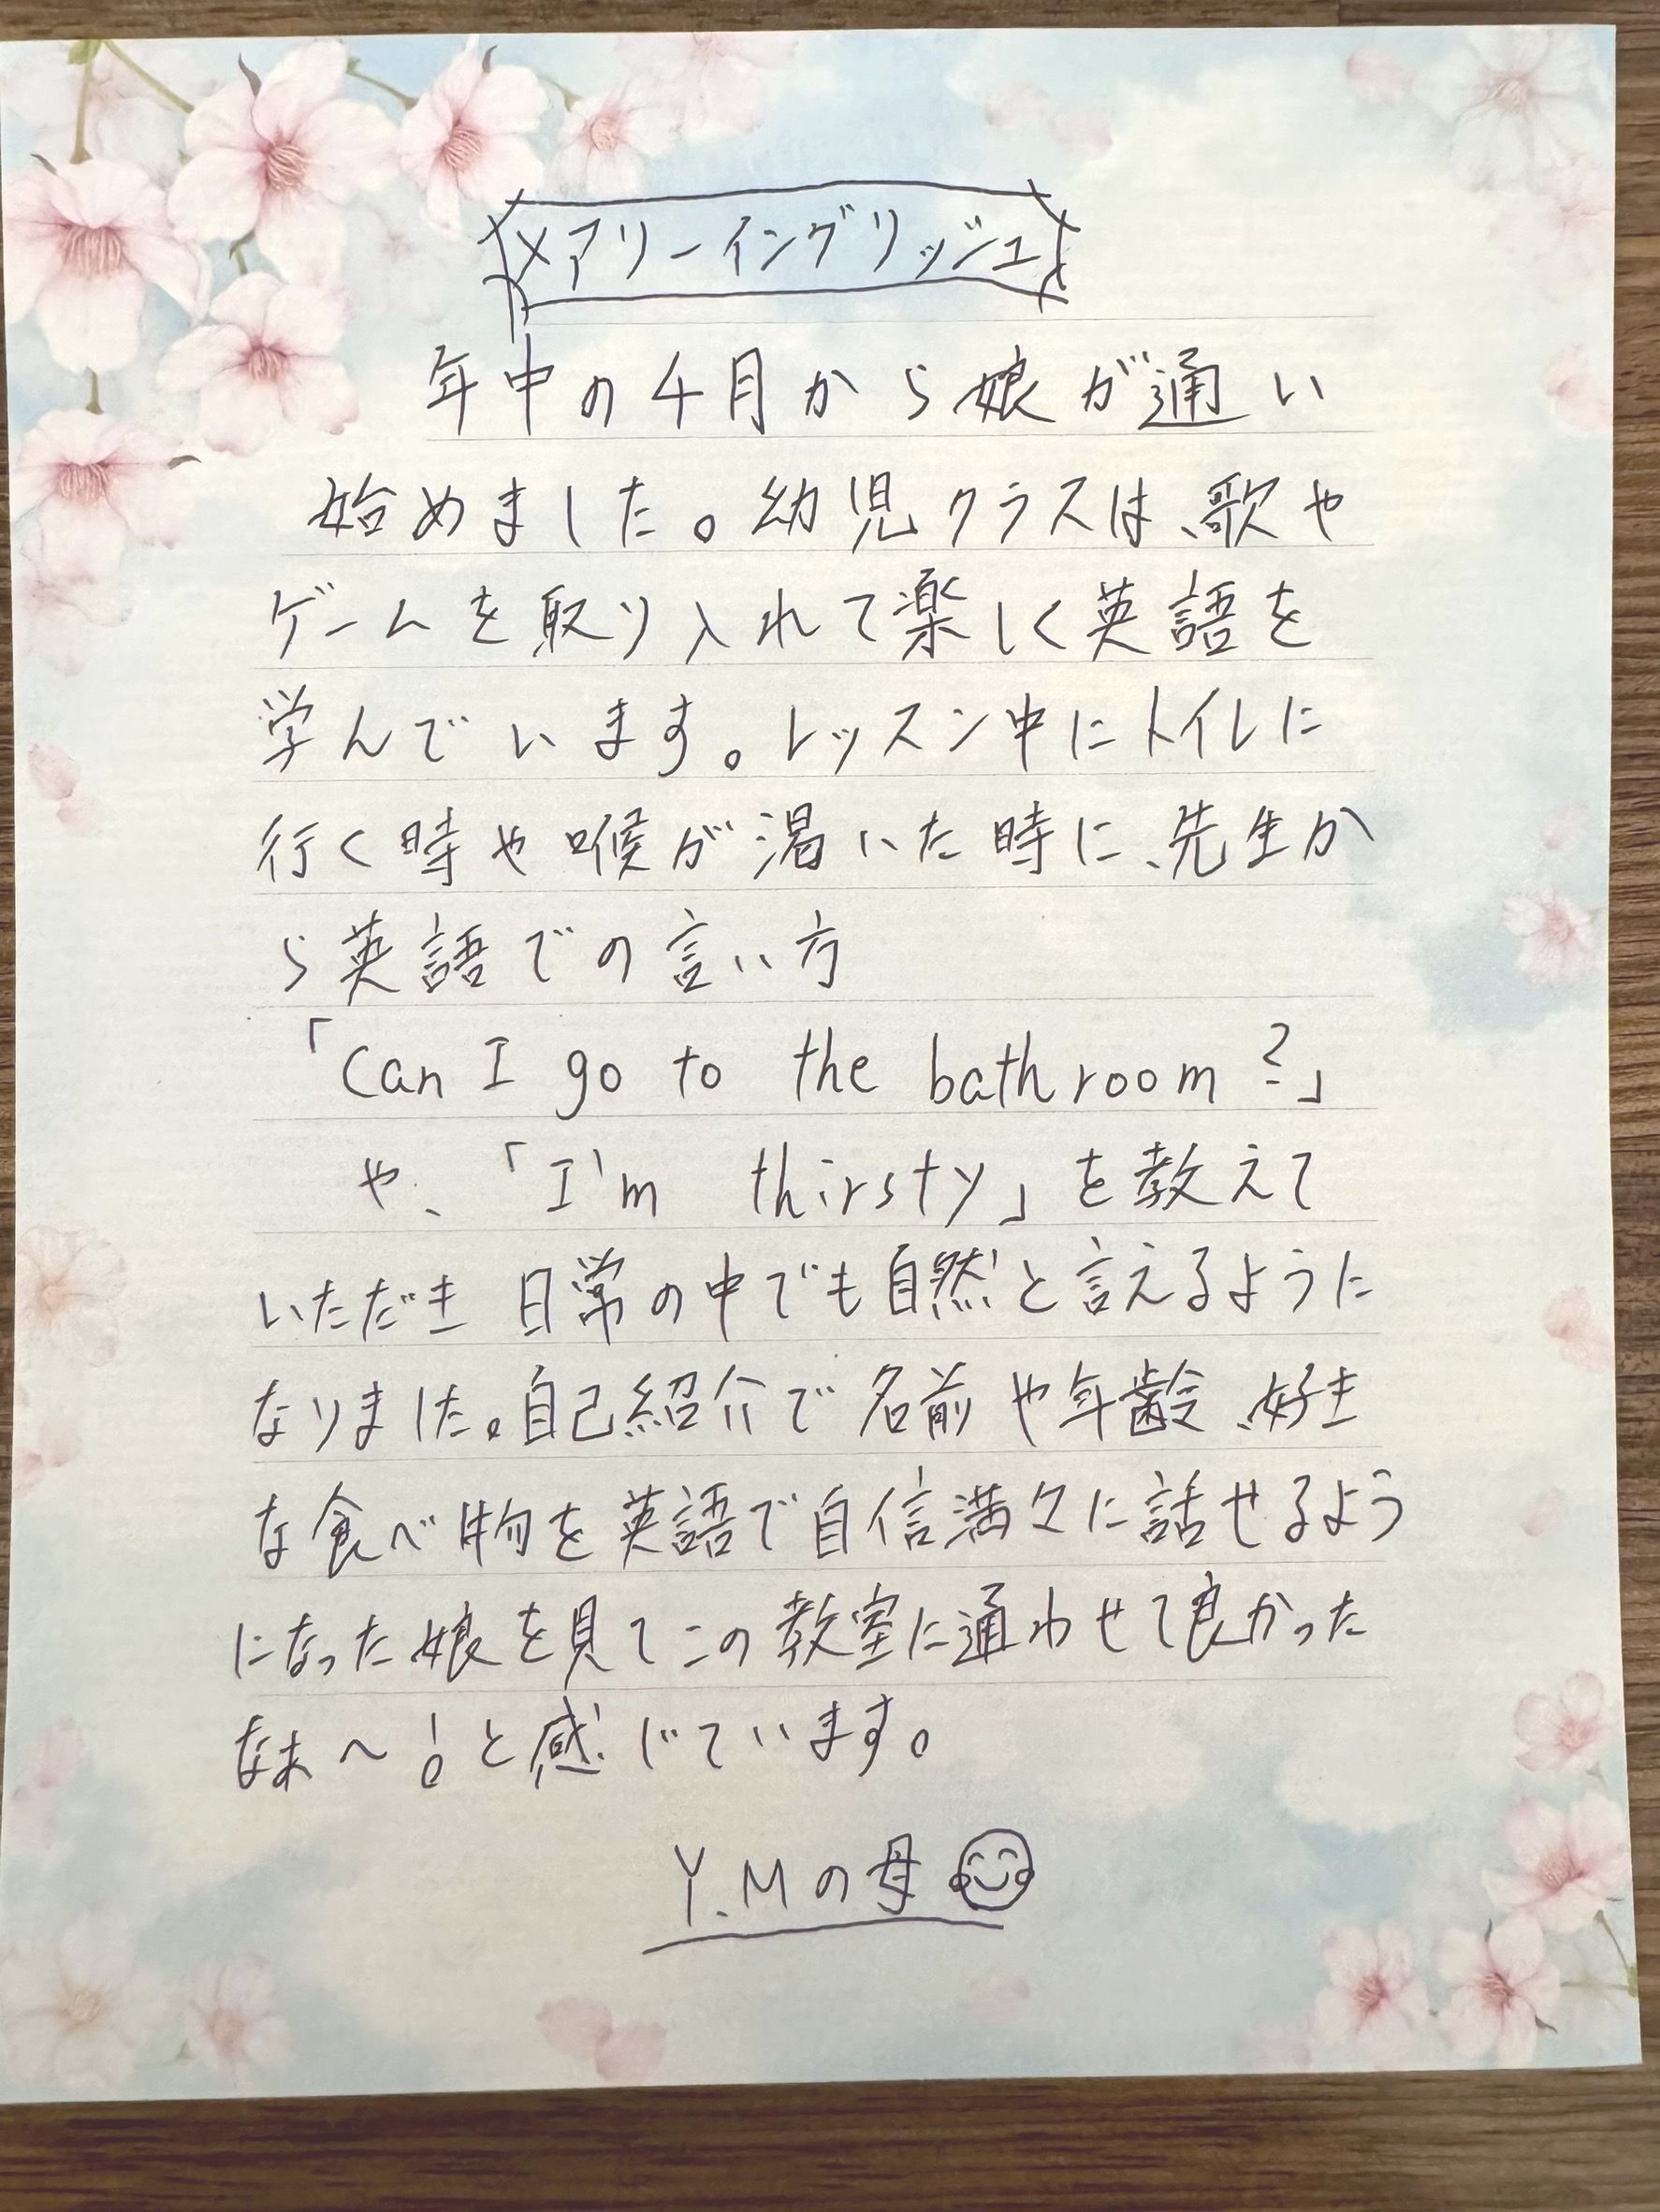 メアリーイングリッシュ
年中の4月から娘が通い
始めました。幼児クラスは、歌や
ゲームを取り入れて楽しく英語を
学んでいます。レッスン中にトイレに
行く時や喉が渇いた時に、先生か
ら英語での言い方
「Can I go to the bathroom?」
や、「I'm thirsty」を教えて
いただき 日常の中でも自然と言えるように
なりました。自己紹介で名前や年齢、好き
な食べ物を英語で自信満々に話せるよう
になった娘を見てこの教室に通わせて良かった
なぁ〜!と感じています。
Y.Mの母